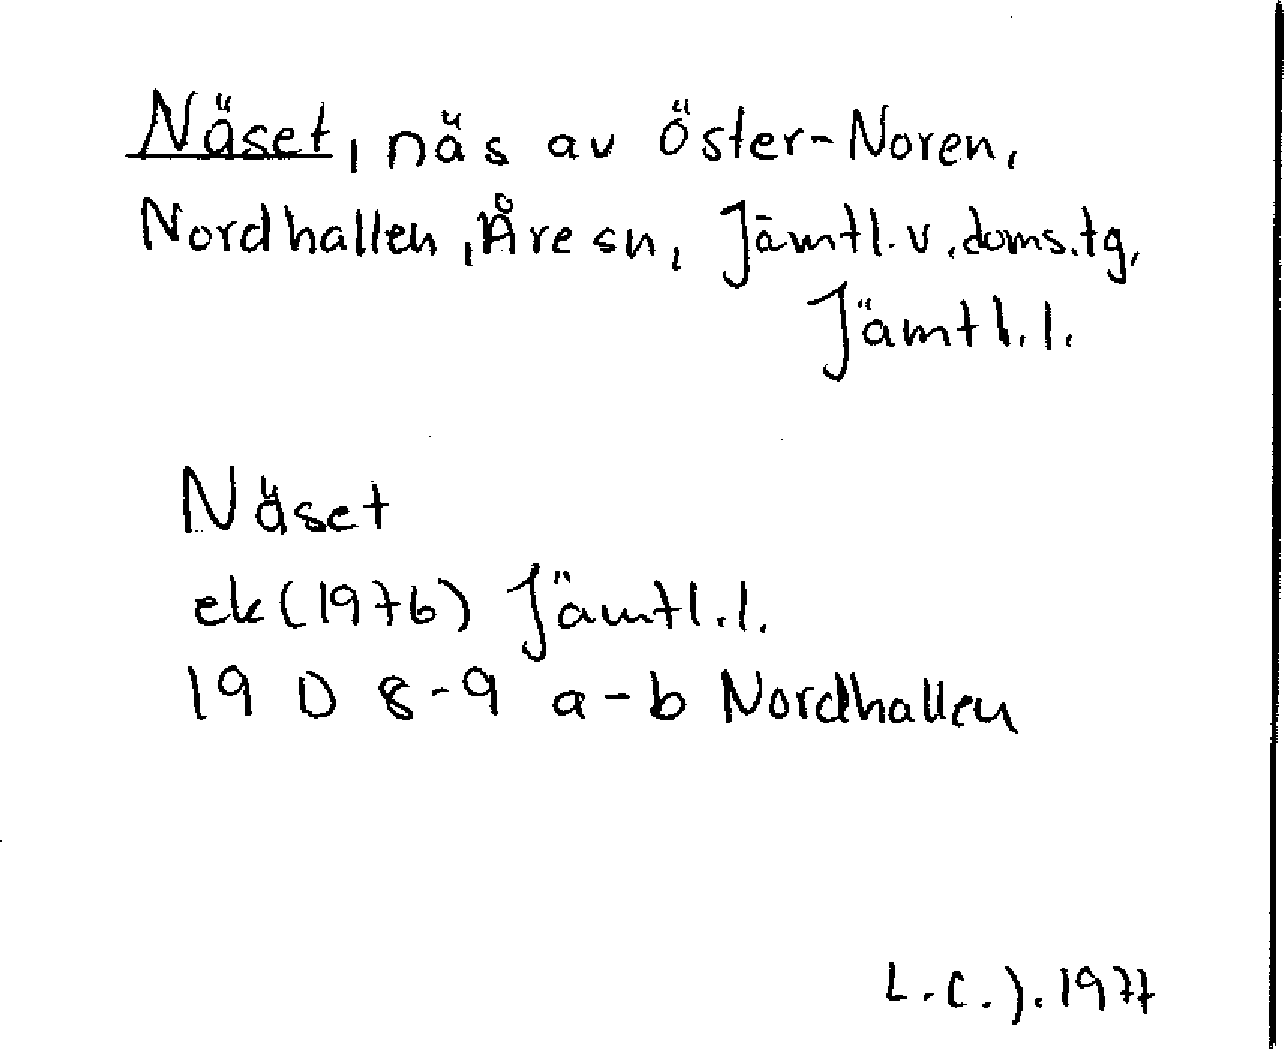 Näset, näs av Öster-Noren,
Nordhallen, Åre sn, Jämtl.v.doms.tg,
Jämtl.l.
Näset
ek(1976) Jämtl.l.
19 D 8-9 a-b Nordhallen
L.C.J.1977